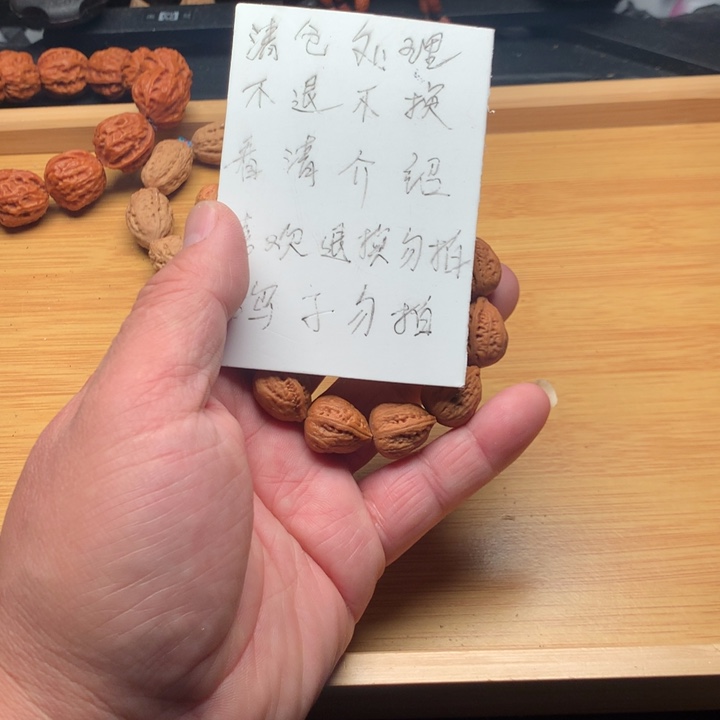 清仓处理
不退不换
看清介绍
喜欢退换勿拍
子勿拍